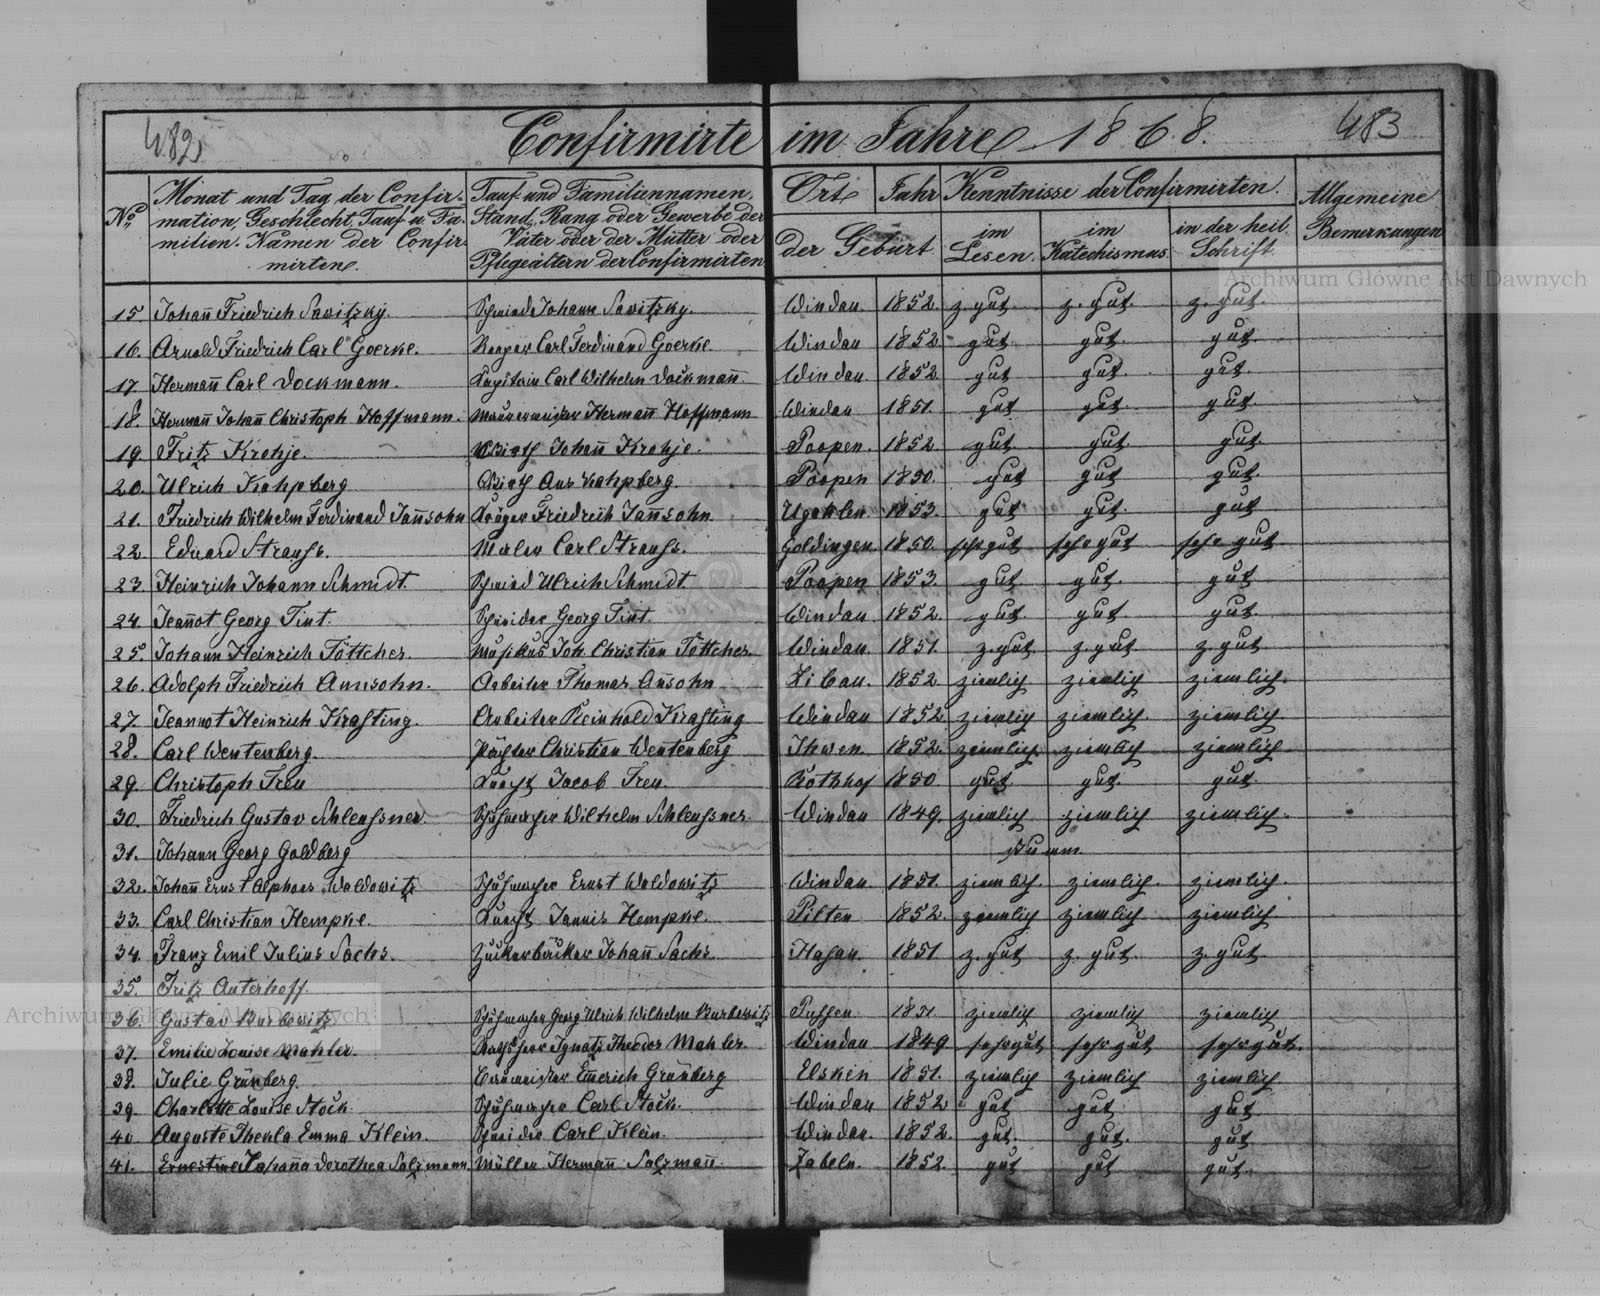 482
Confirmirte im Jahre 1868.
483
No
Monat und Tag der Confir-
mation, Geschlecht, Tauf u. Fa-
milien-Namen der Confir-
mirten.
Tauf und Familiennamen,
Stand, Rang oder Gewerbe der
Väter oder der Mütter oder
Pflegeältern der Confirmirten
Ort
Jahr
der Geburt
Kenntnisse der Confirmirten.
im
Lesen.
im
Katechismus.
in der heil.
Schrift.
Allgemeine
Bemerkungen
Archiwum Główne Akt Dawnych
15. Johañ Friedrich Sawitzky. Schmied Johann Sawitzky. Windau. 1852. z. gut. z. gut. z. gut.
16. Arnold Friedrich Carl Goerke. Carl Ferdinand Goerke. Windau 1852. gut. gut. gut
17. Hermañ Carl Dockmann. Capitain Carl Wilhelm Dockmañ. Windau 1852. gut gut. gut.
18. Hermañ Johañ Christoph Hoffmann. Maurermeister Hermañ Hoffmann Windau 1851. gut gut. gut.
19. Fritz Krehje. Wirth Johañ Krehje. Poopen. 1852. gut gut gut.
20. Ulrich Kahpberg Wirth Ans Kahpberg. Poopen 1850. gut gut gut.
21. Friedrich Wilhelm Ferdinand Jañsohn Krüger Friedrich Jañsohn. Ugahlen. 1853. gut gut. gut
22. Eduard Strauss. Maler Carl Strauss. Goldingen 1850. sehr gut sehr gut sehr gut.
23. Heinrich Johann Schmidt. Schmied Ulrich Schmidt Poopen 1853. gut gut. gut
24. Jeañot Georg Tint. Schneider Georg Tint. Windau. 1852. gut. gut. gut.
25. Johann Heinrich Töttcher. Musikus Joh. Christian Töttcher. Windau. 1851. z. gut z. gut z. gut
26. Adolph Friedrich Ansohn. Arbeiter Thomas Ansohn Libau. 1852. ziemlich ziemlich ziemlich.
27. Jeannot Heinrich Krasting. Arbeiter Reinhold Krasting Windau 1852 ziemlich ziemlich. ziemlich
28. Carl Wentenberg. Pächter Christian Wentenberg Ihwen. 1852. ziemlich. ziemlich ziemlich.
29. Christoph Freu Knecht Jacob Freu. Rothhof 1850 gut gut. gut.
30. Friedrich Gustav Schleussner. Schuhmacher Wilhelm Schleussner. Windau 1849. ziemlich ziemlich ziemlich.
31. Johann Georg Goldberg Stumm.
32. Johañ Ernst Alphons Waldowitz Schuhmacher Ernst Waldowitz Windau 1851. ziemlich. ziemlich. ziemlich.
33. Carl Christian Hempke. Knecht Jannis Hempke. Pilten 1852. ziemlich ziemlich ziemlich.
34. Franz Emil Julius Sachs. Zuckerbäcker Johañ Sachs. Hasau. 1851 z. gut z. gut. z. gut
35. Fritz Auterhoff.
36. Gustav Burbewitz. Schuhmacher Georg Ulrich Wilhelm Burbewitz Pussen. 1851. ziemlich ziemlich ziemlich
Archiwum Główne Akt Dawnych
37. Emilie Louise Mahler. Rathsherr Ignatz Theodor Mahler. Windau 1849 sehr gut sehr gut sehr gut.
38. Julie Grünberg. Emerich Grünberg Elskin 1851. ziemlich ziemlich ziemlich.
39. Charlotte Louise Stock. Schuhmacher Carl Stock. Windau 1852 gut gut gut
40. Auguste Thekla Emma Klein. Schneider Carl Klein. Windau. 1852. gut. gut. gut
41. Ernestine Johañna Dorothea Salzmann. Müller Hermañ Salzmañ. Zabeln. 1852. gut gut gut.